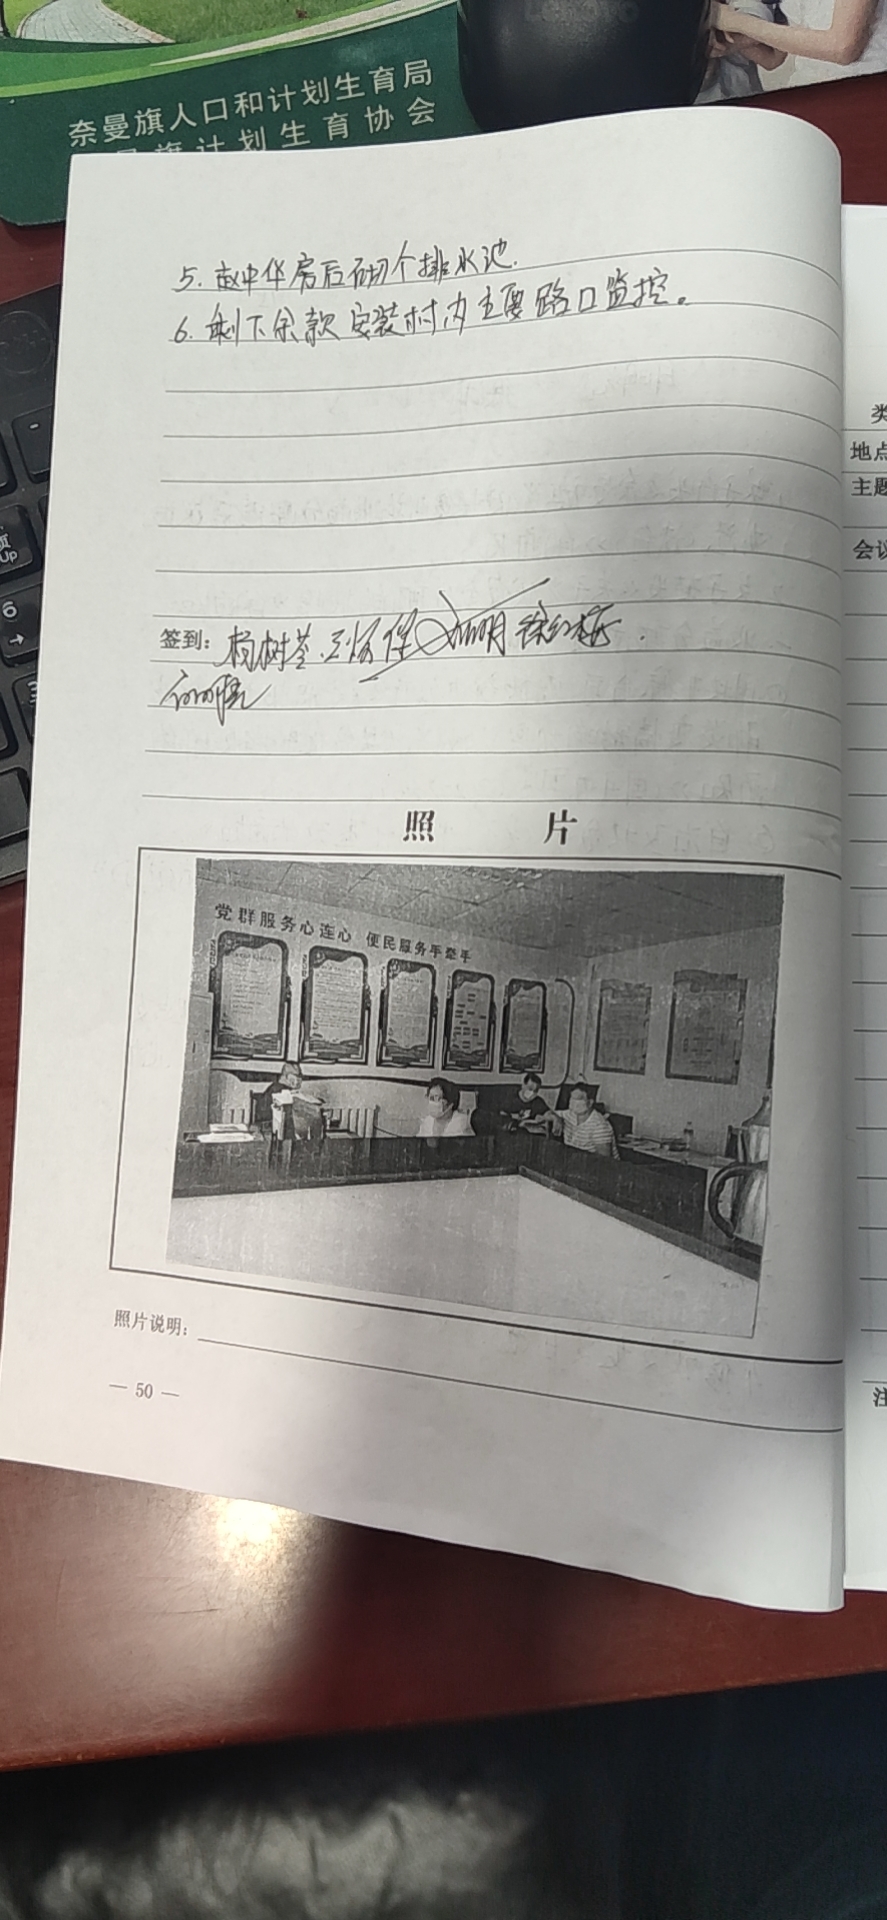 Lenovo
奈曼旗人口和计划生育局
旗计划生育协会
5. 赵中华房后砌个排水池.
6. 剩下余款安装村内主要路口监控。
签到: 杨树
照 片
党群服务心连心 便民服务手牵手
照片说明:
— 50 —
类
地点
主题
会议
注
Up
6